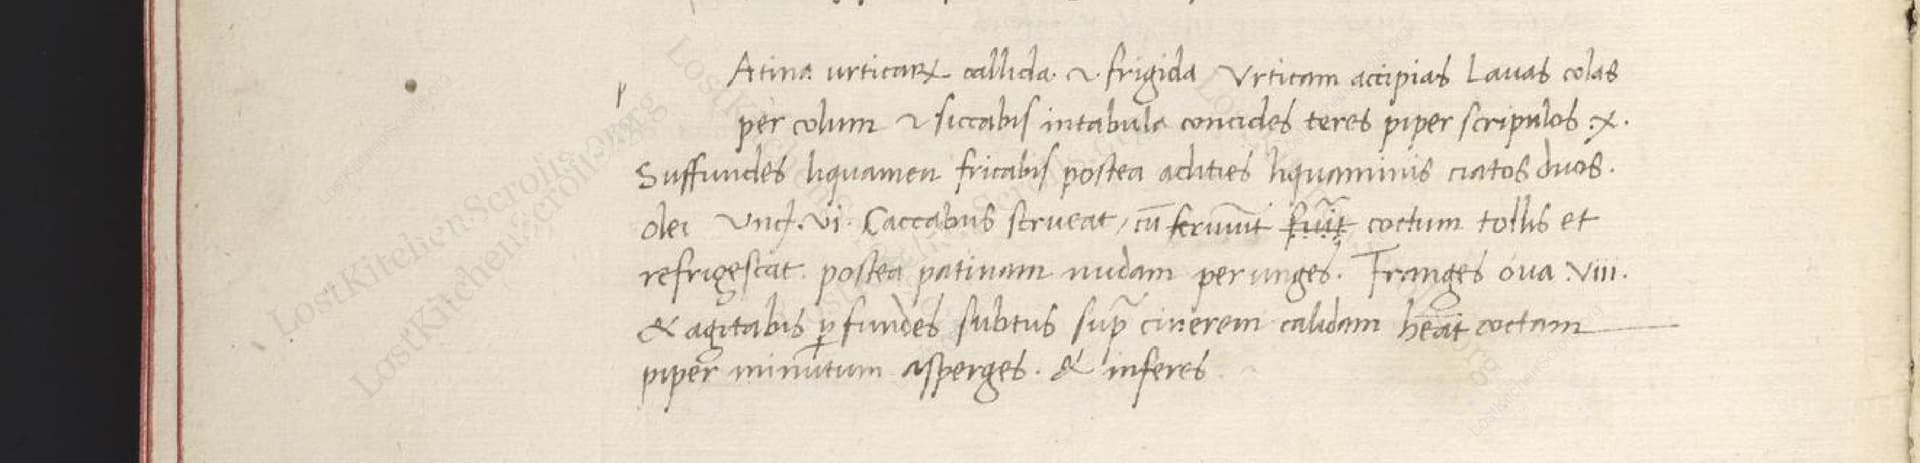 p
Atina urticarꝝ callida · & · frigida Urticam accipias Lavas colas
per colum & siccabis intabula concides teres piper scripulos .x.
Suffundes liquamen fricabis postea adities liquaminis ciatos duos.
olei Unc. vi. Caccabus serveat, cū feruūit coctum tollis et
refrigescat. postea patinam nudam perunges. Franges ova .viii.
& agitabis ꝑfundes subtus supͣ cinerem calidam coctam
piper minutum asperges. & inferes
LostKitchenScrolls.org
LostKitchenScrolls.org